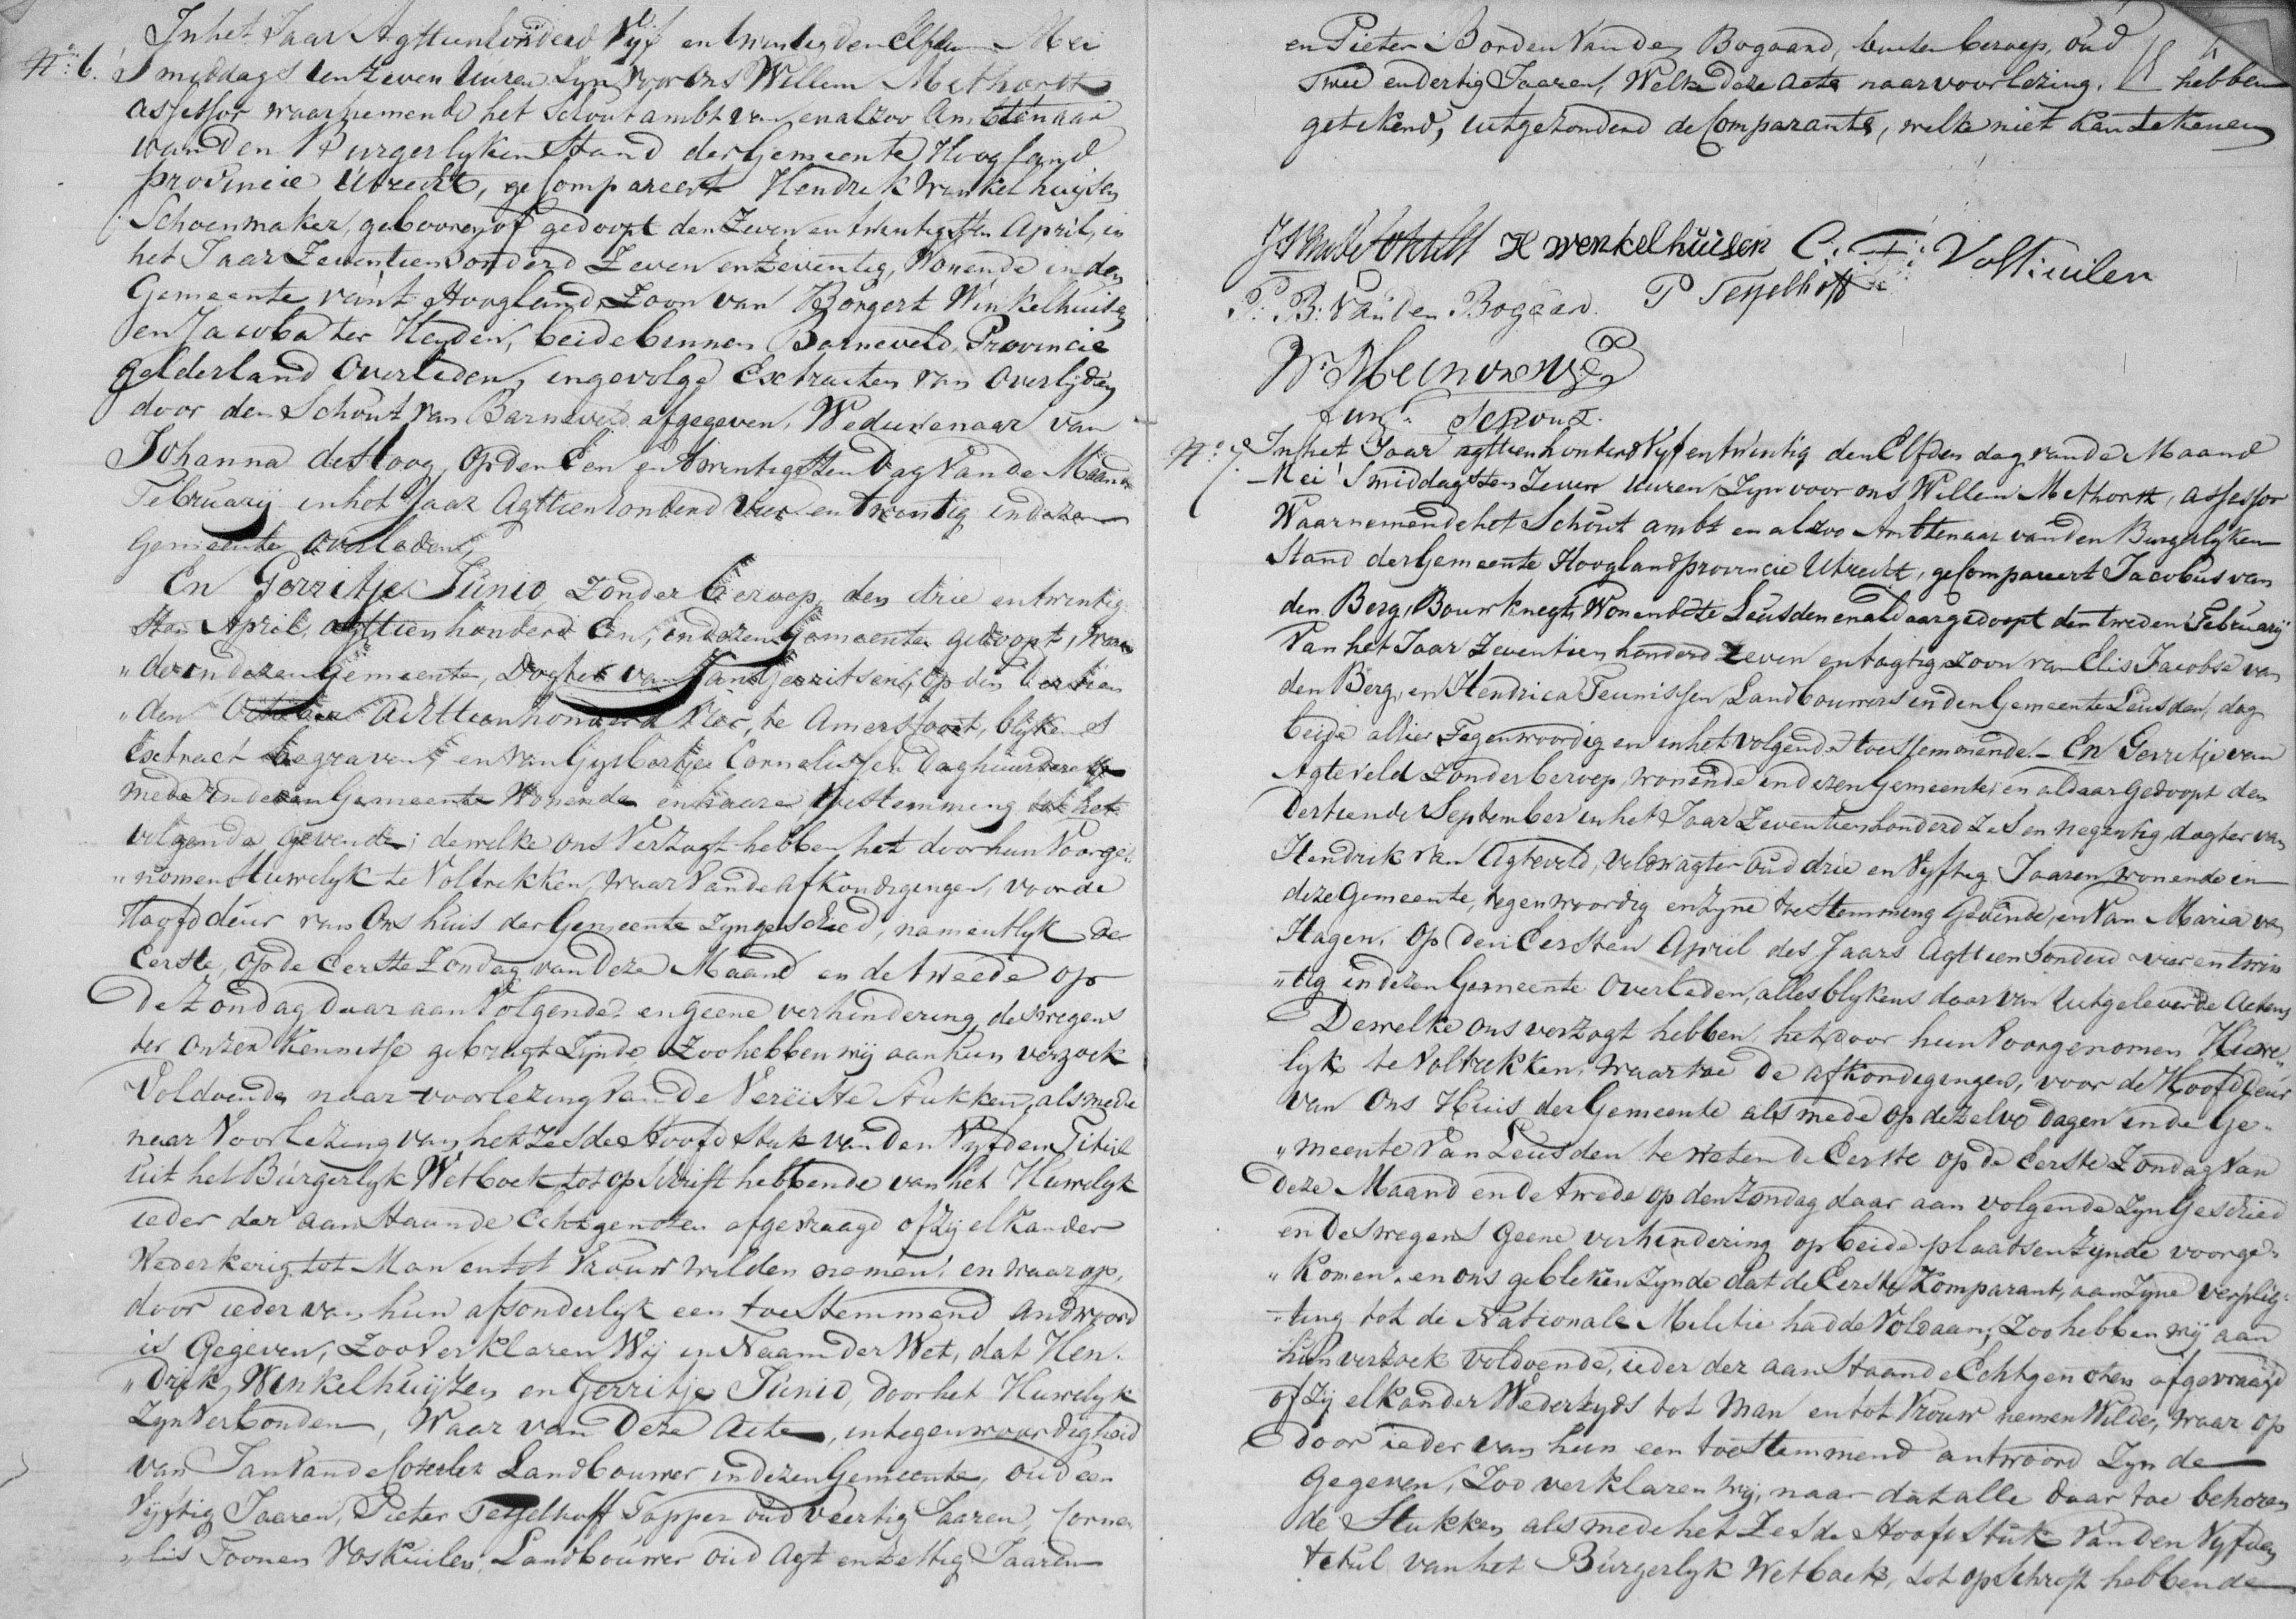 In het Jaar Agttienhonderd Vijf en twintig den Elfden Mei
N:o 6. 'S middags ten zeven Uuren Zyn voor ons Willem Methorst
assessor waarnemende het Schout ambt en alzoo Ambtenaar
van den Burgerlyken Stand der Gemeente Hoogland
provincie Utrecht, geCompareert Hendrik Winkelhuijsen
Schoenmaker, gebooren of gedoopt den Zeven en twintigsten April, in
het Jaar Zeventienhonderd Zeven en Zeventig, Wonende in den
Gemeente van 't Hoogland, Zoon van Borgert Winkelhuisen
en Jacoba ter Heyden, beide binnen Barneveld, Provincie
gelderland Overleden, ingevolge Extracten van Overlyden
door den Schout van Barneveld afgegeven, Weduwenaar van
Johanna de Hoog, op den Een en twintigsten Dag van de Maand
Februarij in het Jaar Agttienhonderd Vier en twintig in deze
Gemeente Overleden,
En Gerritje Junio zonder beroep, den drie en twintig
sten April, agttien honderd Een, in dezen Gemeente gedoopt, wonen
„de in dezen Gemeente, Dogter van Jan Gerritsen, op den dertien
„den October Achttienhonderd Vier, te Amersfoort, blykens
Extract begraven, en van Gysbertje Cornelissen Daghuurderesse
mede in dezen Gemeente Wonende en haare toestemming tot het
volgende gevende; dewelke ons Verzogt hebben het door hun Voorge„
„nomen Huwelyk te Voltrekken, waar Van de afkondigingen, voor de
Hoofddeur van Ons huis der Gemeente zyn geschied, namentlyk de
Eerste, op de Eerste Zondag van deze Maand en de tweede op
de Zondag daar aan Volgende en geene verhindering deswegens
ter onzen kennisse gebragt Zynde Zoo hebben wij aan hun verzoek
Voldoende, naar voorlezing van de Vereiste stukken, als mede
naar Voorlezing van het zesde Hoofdstuk van den Vyfden Titul
uit het Burgerlyk Wetboek tot opschrift hebbende van het Huwelyk
ieder der aanstaande Echtgenoten afgevraagd of zij elkander
Wederkerig tot Man en tot Vrouw wilden nemen, en waarop,
door ieder van hun afsonderlyk een toestemmend andwoord
is Gegeven, Zoo Verklaren Wij in Naam der Wet, dat Hen„
„drik Winkelhuijzen en Gerritje Junio, door het Huwelyk
Zyn Verbonden, Waar van Deze Acte, in tegenwoordigheid
van Jan Van de Landbouwer in dezen Gemeente, oud een
Vyftig Jaaren, Pieter Tesselhoff Tapper oud Veertig Jaaren, Corne„
„lis Toonen Voskuilen, Landbouwer oud Agt en zestig Jaaren
en Pieter Borden Van den Bogaard, buiten beroep, oud
twee en dertig Jaaren, Welke deze acte naar voorlezing, hebben
getekend, uitgezonderd de Comparante, welke niet kan tekenen
H Wenkelhuisen C: T: Voskuilen
P: B: Van den Bogaard. P Tesselhoff
Schout.
N:o 7. In het Jaar agttienhonderd Vyf en twintig den Elfden dag van de Maand
Mei 'S middags ten Zeven Uuren, Zyn voor ons Willem Methorst, assessor
Waarnemende het Schout ambt en alzoo Ambtenaar van den Burgerlyken
Stand der Gemeente Hoogland provincie Utrecht, geCompareert Jacobus van
den Berg, Bouwknegt, Wonende te Leusden en aldaar gedoopt den tweeden Februarij
Van het Jaar Zeventien honderd Zeven en tagtig, zoon van Elis Jacobse van
den Berg, en Hendrica Teunissen, Landbouwers in den Gemeente Leusden, dog
beide alhier Tegenwoordig en in het volgende toestemmende. – En Gerritje van
Agteveld zonder beroep, wonende in dezen Gemeente, en aldaar gedoopt den
Dertiende September in het Jaar Zeventienhonderd Zes en negentig, dogter van
Hendrik van Agteveld, Veldwagter oud drie en Vyftig Jaaren, wonende in
deze Gemeente, tegenwoordig en zyne toestemming Gevende, en Van Maria van
Hagen, op den Eersten April des Jaars Agttien honderd vier en twin
„tig in dezen Gemeente Overleden, alles blykens daar van Uitgeleverde Actens
Dewelke ons verzogt hebben, het door hun Voorgenomen Huwe„
lyk te Voltrekken, waar toe de afkondigingen, voor de Hoofddeur
van Ons Huis der Gemeente als mede op dezelve dagen in de Ge„
„meente Van Leusden te weten de Eerste op de Eerste Zondag Van
Deze Maand en de twede op den Zondag daar aan volgende Zyn Geschied
en Deswegens Geene verhindering op beide plaatsen Zynde voorge„
„komen en ons gebleken Zynde dat de Eerste Komparant, aan Zyne verplig„
„ting tot de Nationale Militie hadde Voldaan, Zoo hebben wij aan
hun verzoek voldoende, ieder der aanstaande Echtgenoten afgevraagd
of zij elkander Wederzyds tot Man en tot Vrouw nemen Wilde, waar op
Door ieder van hun een toestemmend antwoord Zynde
Gegeven, Zoo verklaren wij, naar dat alle daar toe behoren
de Stukken als mede het Zesde Hoofdstuk Van den Vyfden
tetul van het Burgerlyk Wetboek, tot opschrift hebbende